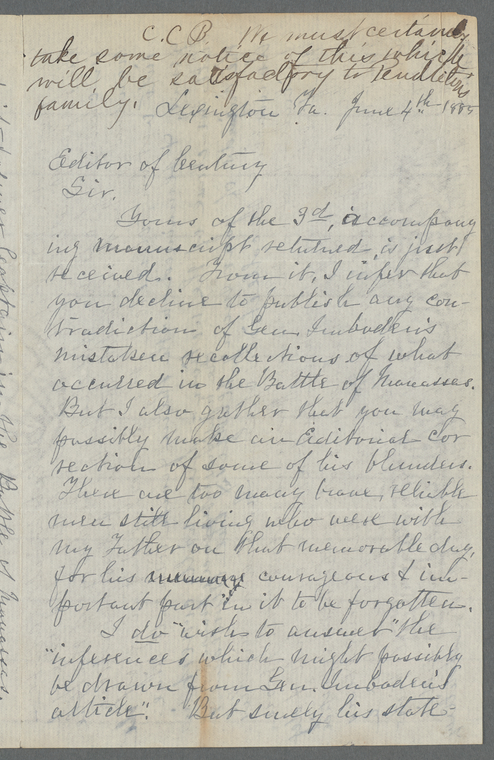 C.C.B. We must certainly
take some notice of this which
will be satisfactory to Pendleton's
family.
Lexington Va. June 4th 1885
Editor of Century
Sir.
Yours of the 3d, accompany
ing manuscript returned is just
received. From it, I infer that
you decline to publish any con-
tradiction of Gen. Imboden's
mistaken recollections of what
occurred in the Battle of Manassas.
But I also gather that you may
possibly make an Editorial cor
rection of some of his blunders.
There are too many brave, reliable
men still living who were with
my Father on that memorable day,
for his courageous & im-
portant part in it to be forgotten.
I do "wish to answer" the
"inferences which might possibly
be drawn from Gen. Imboden's
article". But surely his state-
Captain in the Battle of Manassas.